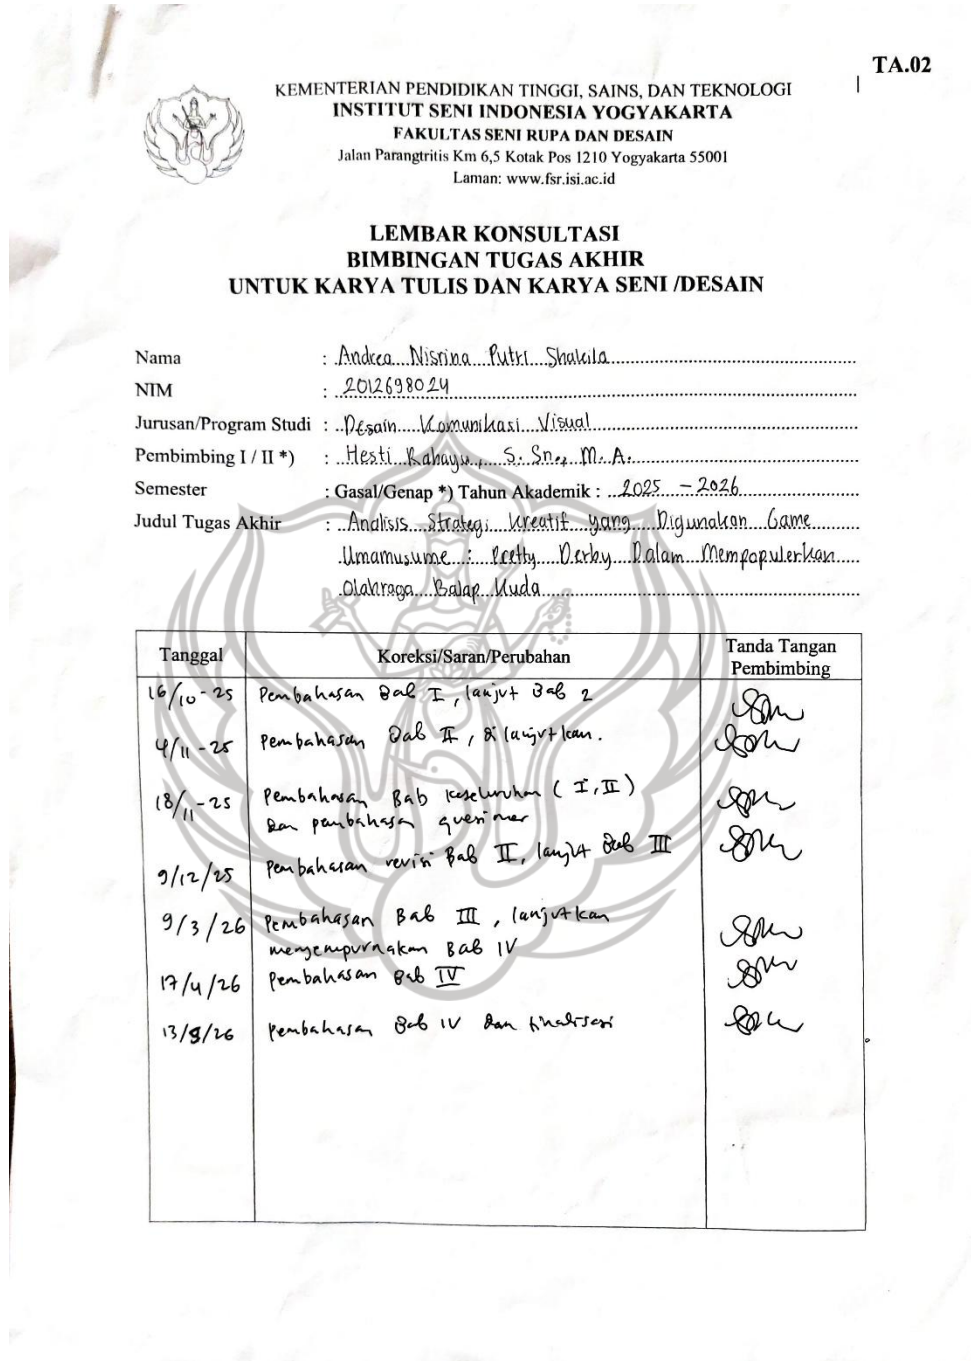 TA.02
KEMENTERIAN PENDIDIKAN TINGGI, SAINS, DAN TEKNOLOGI
INSTITUT SENI INDONESIA YOGYAKARTA
FAKULTAS SENI RUPA DAN DESAIN
Jalan Parangtritis Km 6,5 Kotak Pos 1210 Yogyakarta 55001
Laman: www.fsr.isi.ac.id
LEMBAR KONSULTASI
BIMBINGAN TUGAS AKHIR
UNTUK KARYA TULIS DAN KARYA SENI /DESAIN
Nama : Andrea Nisrina Putri Shakila
NIM : 2012698024
Jurusan/Program Studi : Desain Komunikasi Visual
Pembimbing I / II *) : Hesti Rahayu, S. Sn., M. A.
Semester : Gasal/Genap *) Tahun Akademik : 2025 - 2026
Judul Tugas Akhir : Analisis Strategi Kreatif yang Digunakan Game
Umamusume : Pretty Derby Dalam Mempopulerkan
Olahraga Balap Kuda
Tanggal Koreksi/Saran/Perubahan Tanda Tangan Pembimbing
16/10-25 Pembahasan Bab I, lanjut Bab 2
4/11-25 Pembahasan Bab II, dilanjutkan.
18/11-25 Pembahasan Bab keseluruhan (I, II)
dan pembahasan quesioner
9/12/25 Pembahasan revisi Bab II, lanjut Bab III
9/3/26 Pembahasan Bab III, lanjutkan
menyempurnakan Bab IV
17/4/26 Pembahasan Bab IV
13/5/26 Pembahasan Bab IV dan finalisasi